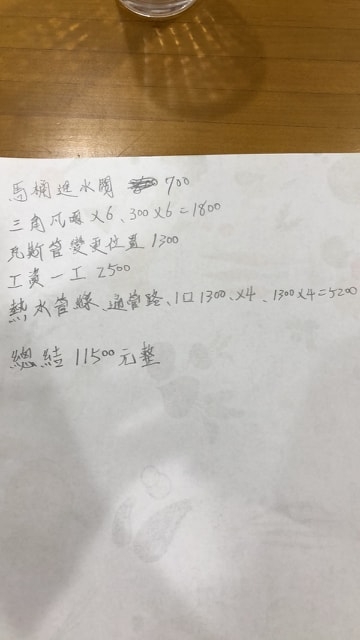 馬桶進水開 700
三角凡而 X6、300 X 6 = 1800
瓦斯管變更位置 1300
工資一工 2500
熱水管線、通管路、1口1300、X4、1300X4=5200
總結 11500元整